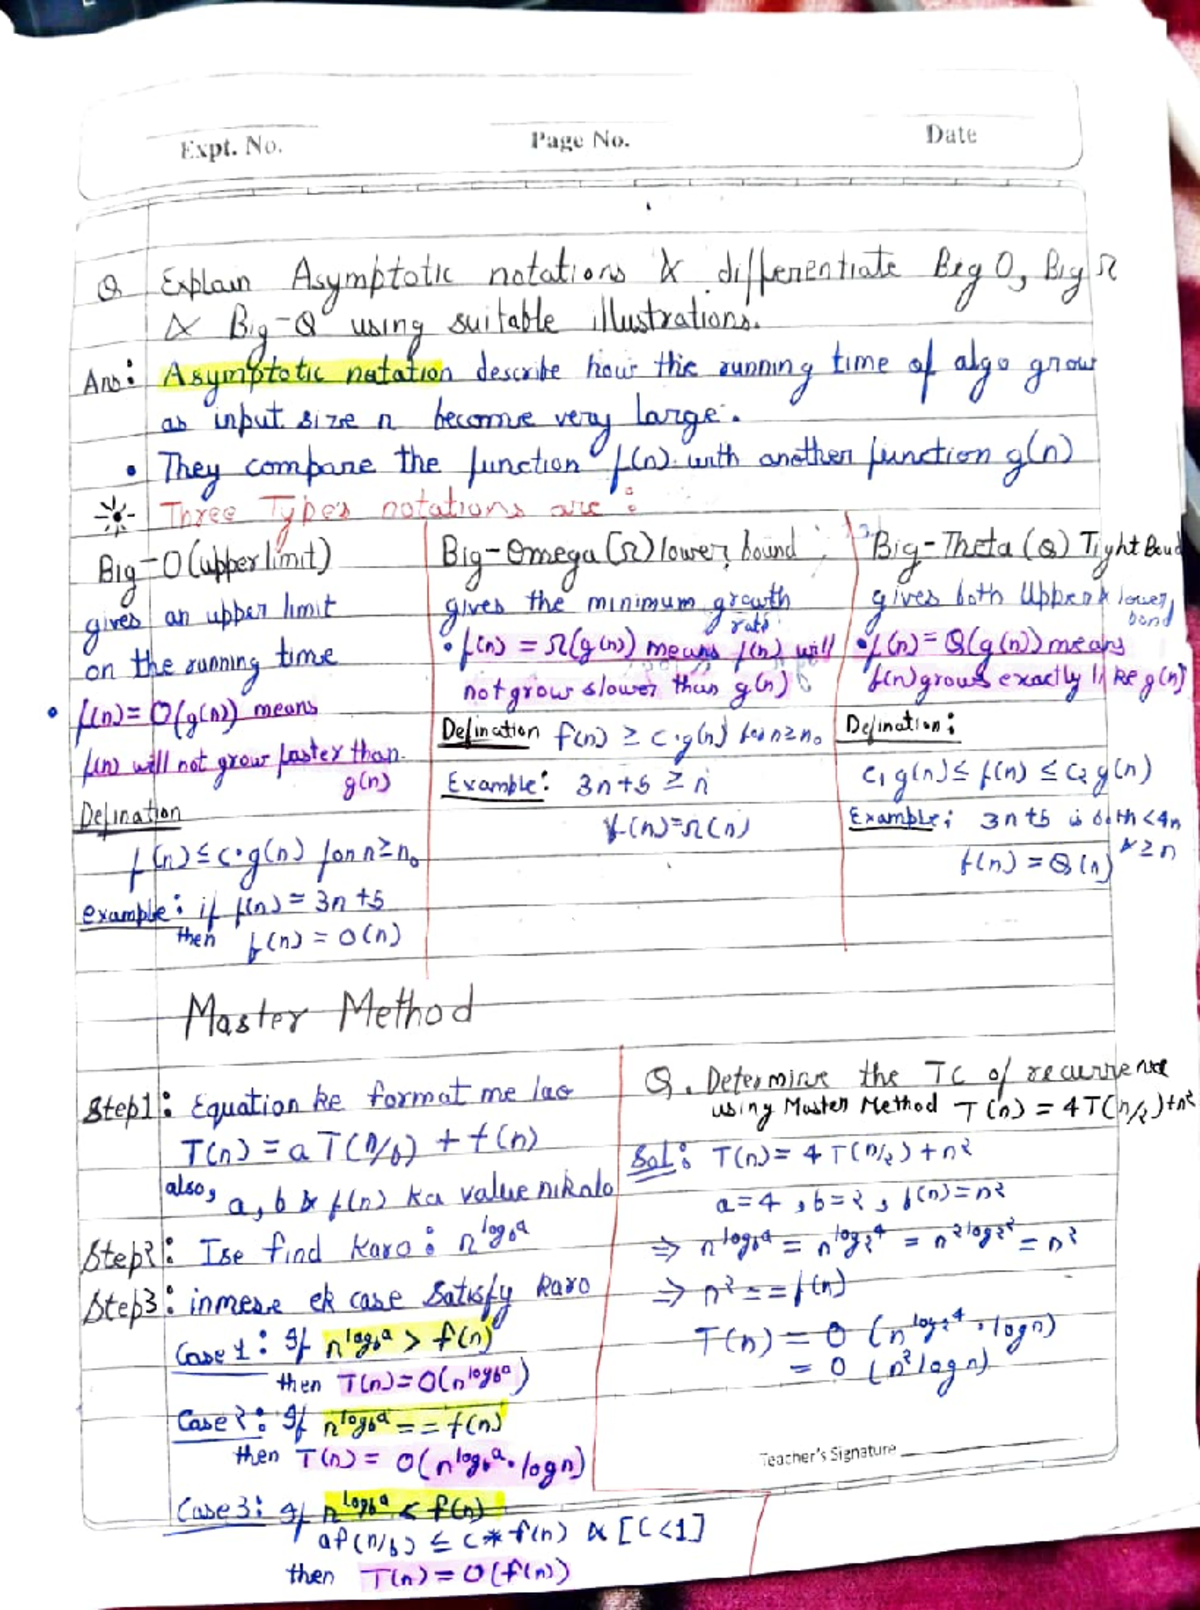 Expt. No. Page No. Date
Q Explain Asymptotic notations & differentiate Big O, Big Ω
& Big-Q using suitable illustrations.
Ans: Asymptotic notation describe how the running time of algo grow
as input size n become very large.
• They compare the function f(n) with another function g(n)
Three Types notations are:
Big-O (upper limit)
gives an upper limit
on the running time
• f(n) = O(g(n)) means
f(n) will not grow faster than
g(n)
Defination
f(n) ≤ c·g(n) for n≥n₀
example: if f(n) = 3n+5
then f(n) = O(n)
Big-Omega (Ω) lower bound
gives the minimum growth
rate
• f(n) = Ω(g(n)) means f(n) will
not grow slower than g(n)
Defination f(n) ≥ c·g(n) for n≥n₀
Example: 3n+5 ≥ n
f(n)=Ω(n)
Big-Theta (Q) Tight Boud
gives both Upper & lower
bond
• f(n) = Q(g(n)) means
f(n) grows exactly like g(n)
Defination:
c₁g(n) ≤ f(n) ≤ c₂g(n)
Example: 3n+5 is both <4n
& ≥n
f(n) = Q(n)
Master Method
Step1: Equation ke format me lao
T(n) = aT(n/b) + f(n)
also, a, b & f(n) ka value nikalo
Step2: Ise find karo: n^log_b a
Step3: inmese ek case Satisfy karo
Case 1: If n^log_b a > f(n)
then T(n)=O(n^log_b a)
Case 2: If n^log_b a == f(n)
then T(n) = O(n^log_b a · logn)
Case 3: If n^log_b a < f(n)
af(n/b) ≤ c*f(n) & [C<1]
then T(n) = O(f(n))
Q. Determine the TC of recurrence
using Master Method T(n) = 4T(n/2)+n²
Sol: T(n) = 4T(n/2)+n²
a=4, b=2, f(n)=n²
⇒ n^log_b a = n^log_2 4 = n^2log_2 2 = n²
⇒ n² == f(n)
T(n) = O (n^log_2 4 · logn)
= O (n² log n)
Teacher's Signature